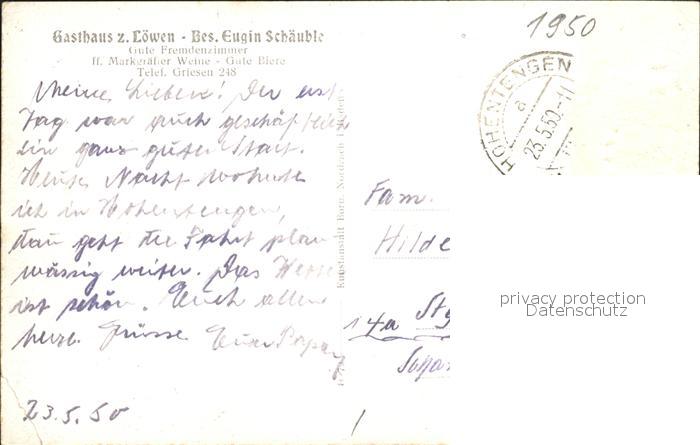 1950
Gasthaus z. Löwen - Bes. Eugin Schäuble
Gute Fremdenzimmer
ff. Markgräfler Weine - Gute Biere
Telef. Griesen 248
HOHENTENGEN
a
23.5.50.-11
Meine Lieben! Der erste
Tag war auch geschäftlich
ein ganz guter Start.
Heute Nacht wohnte
ich in Hohentengen,
dan geht die Fahrt plan-
mässig weiter. Das Wetter
ist schön. Euch allen
herzl. Grüsse Euer Papa
23.5.50
Kunstanstalt
Fam.
Hilde
14a
privacy protection
Datenschutz